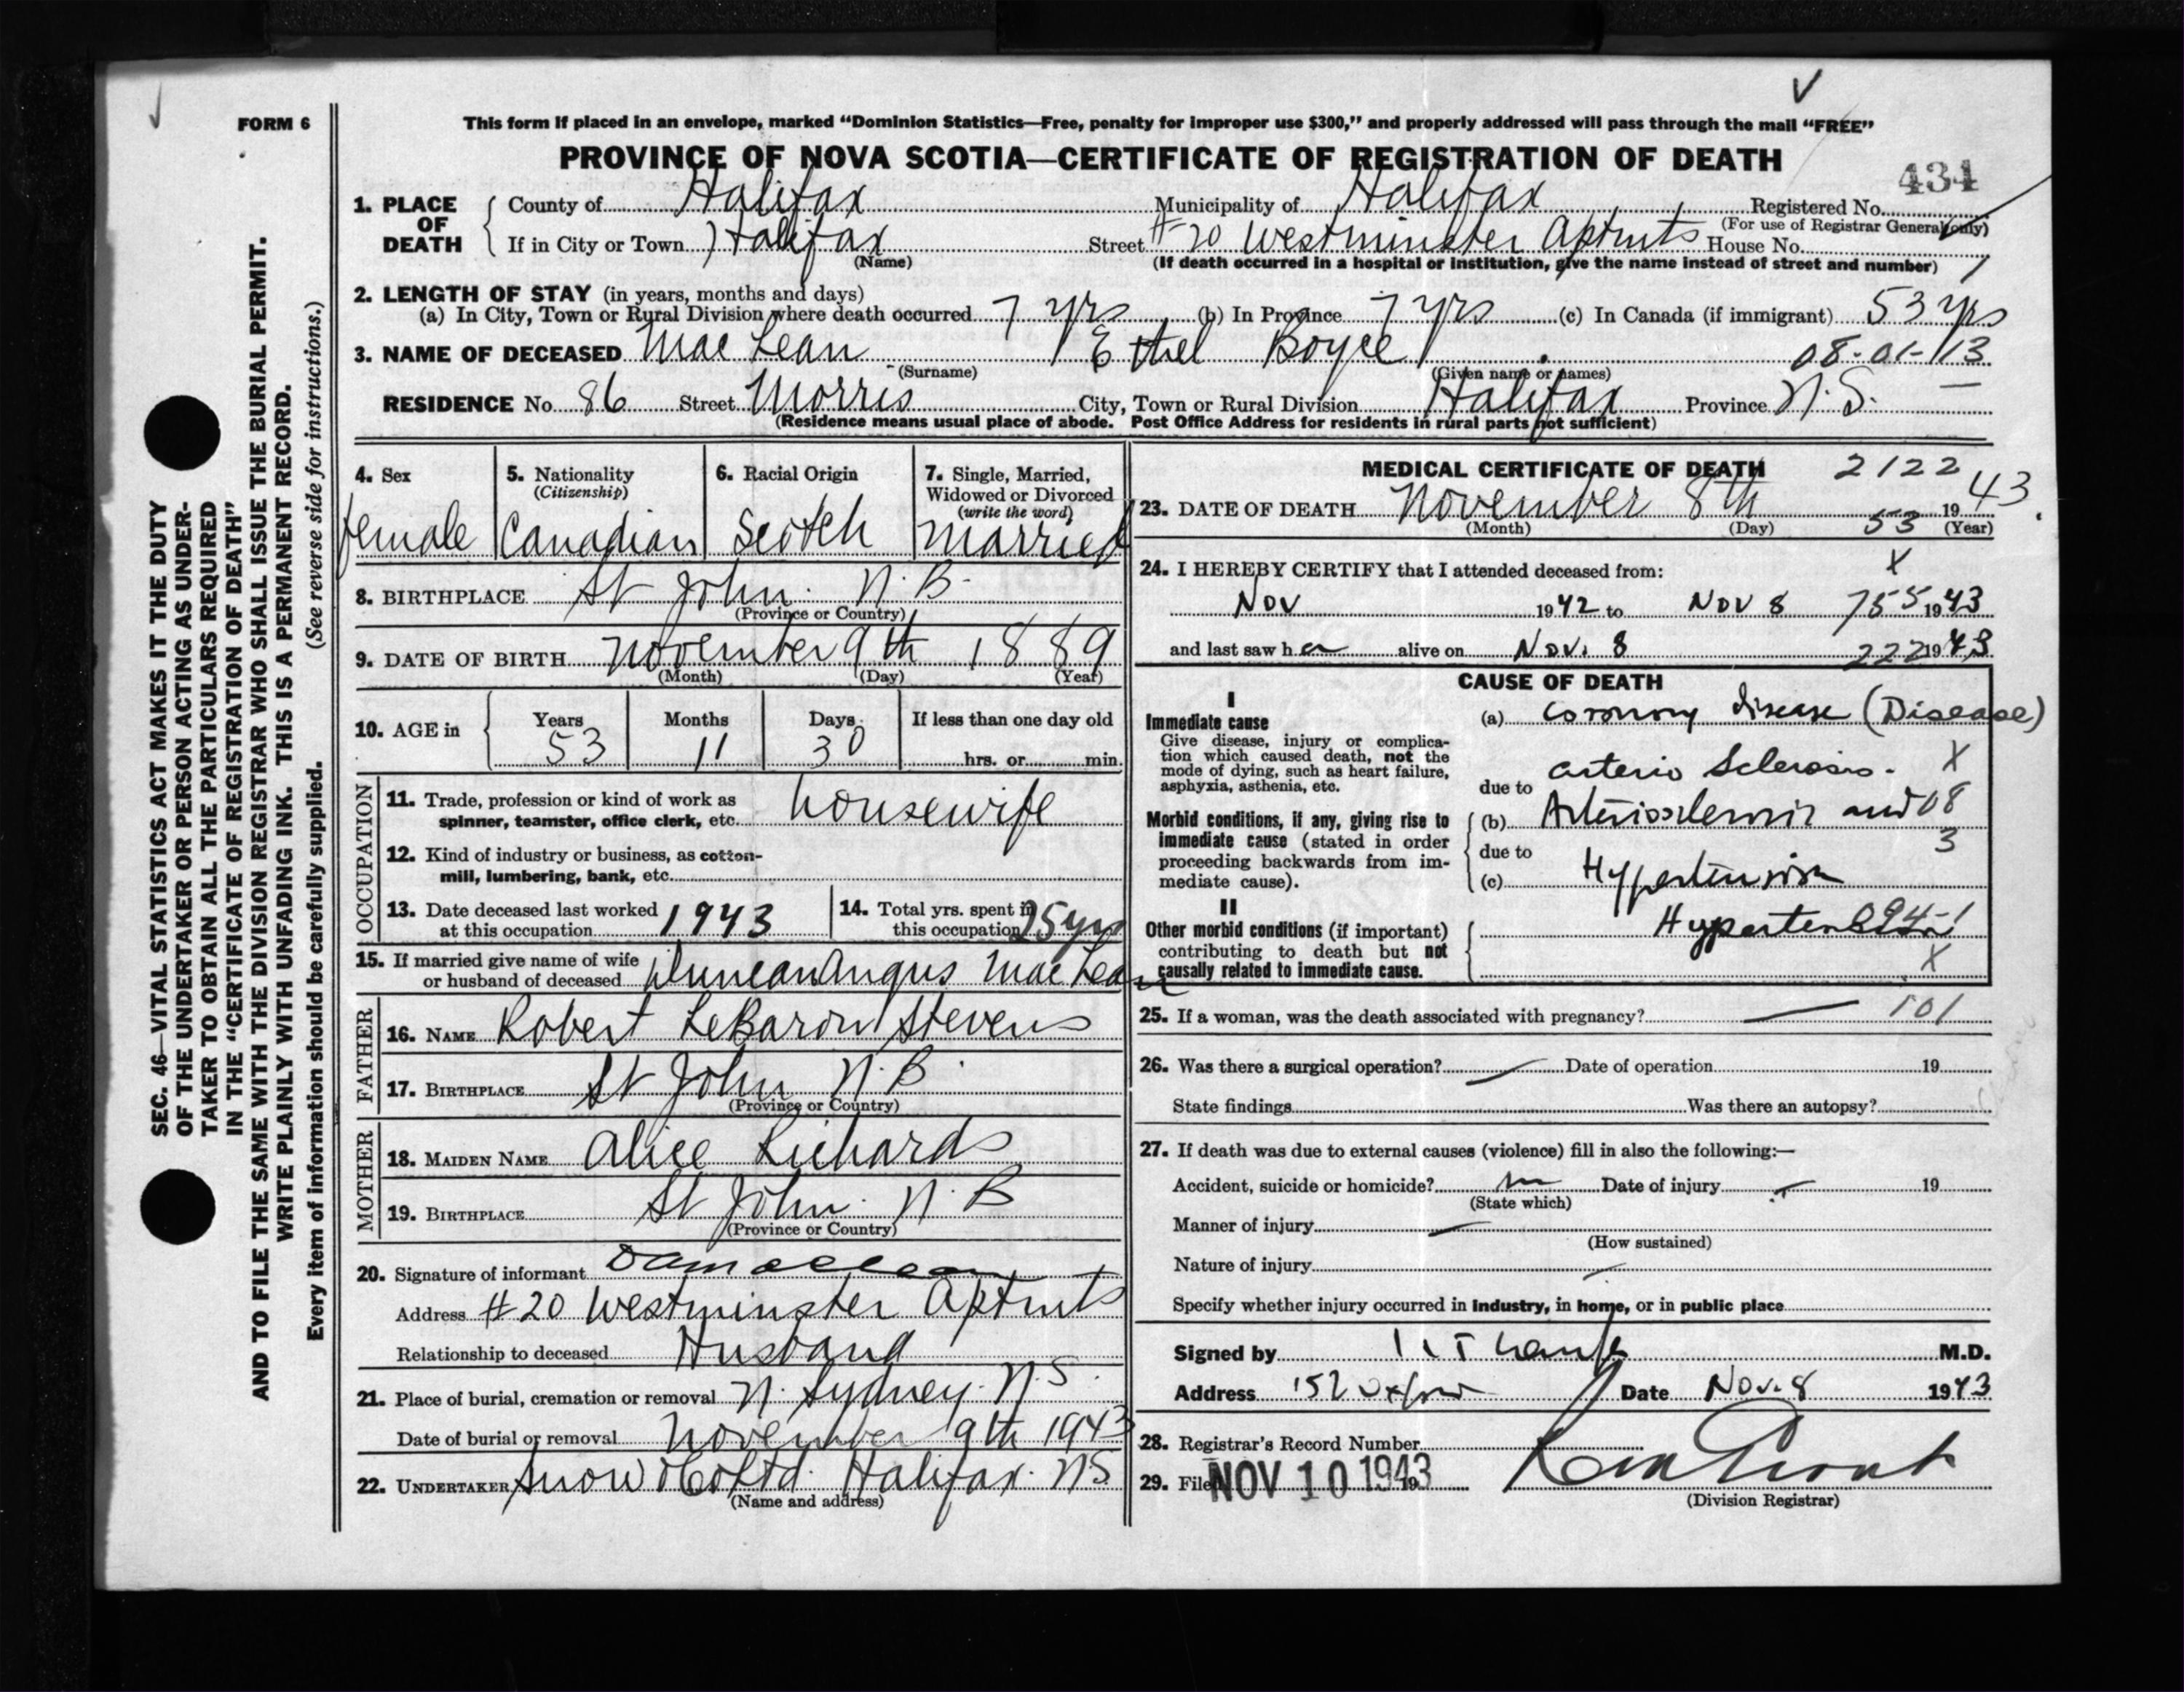 FORM 6
This form if placed in an envelope, marked “Dominion Statistics—Free, penalty for improper use $300,” and properly addressed will pass through the mail “FREE”
PROVINCE OF NOVA SCOTIA—CERTIFICATE OF REGISTRATION OF DEATH
434
1. PLACE OF DEATH County of Halifax Municipality of Halifax Registered No.
(For use of Registrar General only)
If in City or Town Halifax Street # 20 Westminster Aptmts House No.
(Name) (If death occurred in a hospital or institution, give the name instead of street and number) 1
2. LENGTH OF STAY (in years, months and days)
(a) In City, Town or Rural Division where death occurred 7 yrs (b) In Province 7 yrs (c) In Canada (if immigrant) 53 yrs
3. NAME OF DECEASED Mac Lean Ethel Boyce 08-01-113
(Surname) (Given name or names)
RESIDENCE No. 86 Street Morris City, Town or Rural Division Halifax Province N.S. —
(Residence means usual place of abode. Post Office Address for residents in rural parts not sufficient)
4. Sex
female
5. Nationality
(Citizenship)
Canadian
6. Racial Origin
Scotch
7. Single, Married,
Widowed or Divorced
(write the word)
Married
8. BIRTHPLACE St John. N.B.
(Province or Country)
9. DATE OF BIRTH November 9th 1889
(Month) (Day) (Year)
10. AGE in Years Months Days If less than one day old
53 11 30 hrs. or min.
OCCUPATION
11. Trade, profession or kind of work as
spinner, teamster, office clerk, etc. housewife
12. Kind of industry or business, as cotton-
mill, lumbering, bank, etc.
13. Date deceased last worked
at this occupation 1943
14. Total yrs. spent in
this occupation 25 yrs
15. If married give name of wife
or husband of deceased Duncan Angus Mac Lean
FATHER
16. NAME Robert LeBaron Stevens
17. BIRTHPLACE St John N.B.
(Province or Country)
MOTHER
18. MAIDEN NAME Alice Richards
19. BIRTHPLACE St John. N.B
(Province or Country)
20. Signature of informant DA MacLean
Address # 20 Westminster Aptmts
Relationship to deceased Husband
21. Place of burial, cremation or removal N. Sydney. N.S.
Date of burial or removal November 9th 1943
22. UNDERTAKER Snow & Co Ltd. Halifax. NS
(Name and address)
MEDICAL CERTIFICATE OF DEATH 2122
23. DATE OF DEATH November 8th 1943.
(Month) (Day) 53 (Year)
24. I HEREBY CERTIFY that I attended deceased from: X
Nov 1942 to Nov 8 755 1943
and last saw her alive on Nov. 8 222 1943
CAUSE OF DEATH
I
Immediate cause
Give disease, injury or complica-
tion which caused death, not the
mode of dying, such as heart failure,
asphyxia, asthenia, etc.
(a) Coronary disease (Disease)
due to arterio Sclerosis. X
Morbid conditions, if any, giving rise to
immediate cause (stated in order
proceeding backwards from im-
mediate cause).
(b) Arteriosclerosis and 08
due to 3
(c) Hypertension
II
Other morbid conditions (if important)
contributing to death but not
causally related to immediate cause.
094-1
X
25. If a woman, was the death associated with pregnancy? — 101
26. Was there a surgical operation? — Date of operation 19
State findings Was there an autopsy?
27. If death was due to external causes (violence) fill in also the following:—
Accident, suicide or homicide? Date of injury 19
(State which)
Manner of injury —
(How sustained)
Nature of injury
Specify whether injury occurred in industry, in home, or in public place
Signed by M.D.
Address 152 Oxford Date Nov. 8 1943
28. Registrar's Record Number
29. Filed NOV 10 1943 19
(Division Registrar)
SEC. 46—VITAL STATISTICS ACT MAKES IT THE DUTY
OF THE UNDERTAKER OR PERSON ACTING AS UNDER-
TAKER TO OBTAIN ALL THE PARTICULARS REQUIRED
IN THE “CERTIFICATE OF REGISTRATION OF DEATH”
AND TO FILE THE SAME WITH THE DIVISION REGISTRAR WHO SHALL ISSUE THE BURIAL PERMIT.
WRITE PLAINLY WITH UNFADING INK. THIS IS A PERMANENT RECORD.
Every item of information should be carefully supplied. (See reverse side for instructions.)